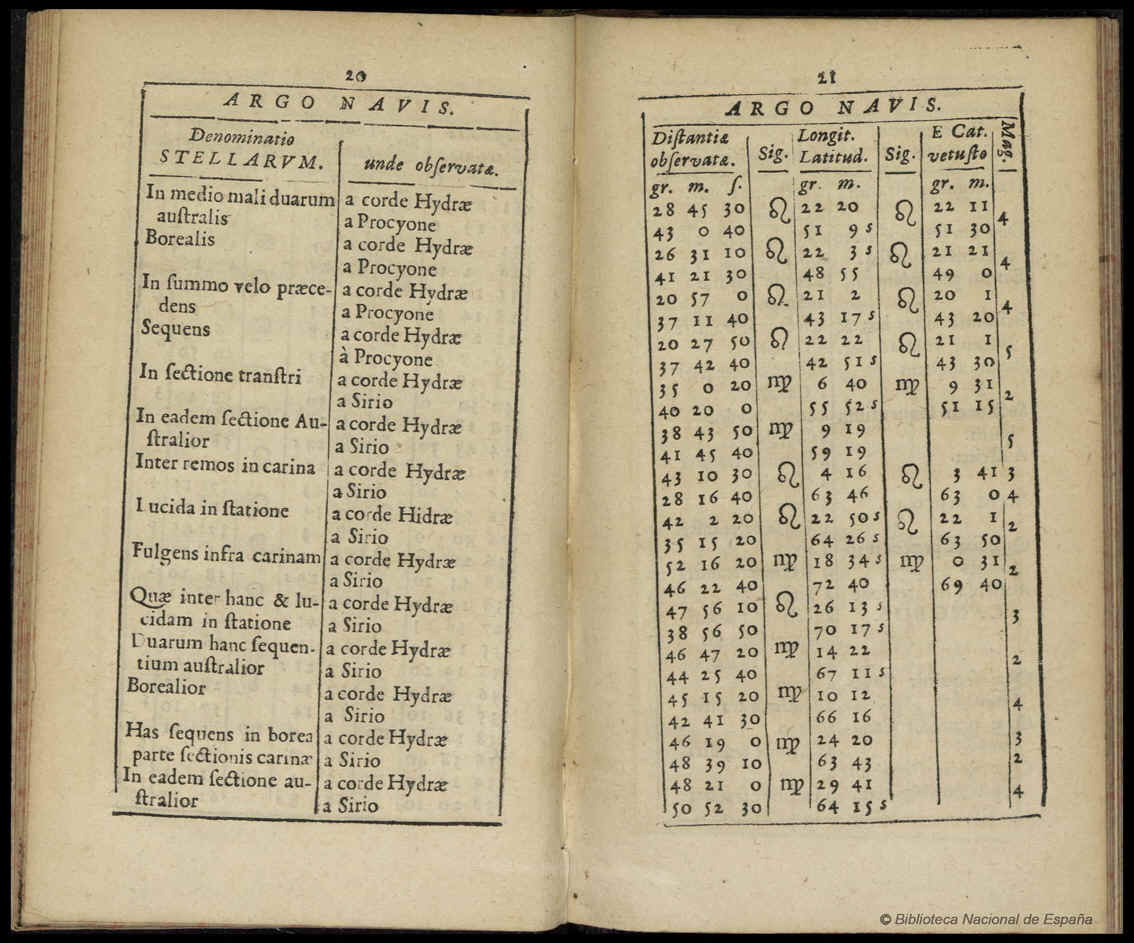 20
ARGO NAVIS.
Denominatio
STELLARVM.
unde obſervatæ.
In medio mali duarum a corde Hydræ
auſtralis a Procyone
Borealis a corde Hydræ
a Procyone
In ſummo velo præce- a corde Hydræ
dens a Procyone
Sequens a corde Hydræ
à Procyone
In ſectione tranſtri a corde Hydræ
a Sirio
In eadem ſectione Au- a corde Hydræ
ſtralior a Sirio
Inter remos in carina a corde Hydræ
a Sirio
Lucida in ſtatione a corde Hidræ
a Sirio
Fulgens infra carinam a corde Hydræ
a Sirio
Quæ inter hanc & lu- a corde Hydræ
cidam in ſtatione a Sirio
Duarum hanc ſequen- a corde Hydræ
tium auſtralior a Sirio
Borealior a corde Hydræ
a Sirio
Has ſequens in borea a corde Hydræ
parte ſectionis carinæ a Sirio
In eadem ſectione au- a corde Hydræ
ſtralior a Sirio
21
ARGO NAVIS.
Diſtantiæ Longit. E Cat. Mag.
obſervatæ. Sig. Latitud. Sig. vetuſto
gr. m. ſ. gr. m. gr. m.
28 45 30 ♌ 22 20 ♌ 22 11 4
43 0 40 51 9 s 51 30
26 31 10 ♌ 22 3 s ♌ 21 21 4
41 21 30 48 55 49 0
20 57 0 ♌ 21 2 ♌ 20 1 4
37 11 40 43 17 s 43 20
20 27 50 ♌ 22 22 ♌ 21 1 5
37 42 40 42 51 s 43 30
35 0 20 ♍ 6 40 ♍ 9 31 2
40 20 0 55 52 s 51 15
38 43 50 ♍ 9 19 5
41 45 40 59 19
43 10 30 ♌ 4 16 ♌ 3 41 3
28 16 40 63 46 63 0 4
42 2 20 ♌ 22 50 s ♌ 22 1 2
35 15 20 64 26 s 63 50
52 16 20 ♍ 18 34 s ♍ 0 31 2
46 22 40 72 40 69 40
47 56 10 ♌ 26 13 s 3
38 56 50 70 17 s
46 47 20 ♍ 14 22 2
44 25 40 67 11 s
45 15 20 ♍ 10 12 4
42 41 30 66 16
46 19 0 ♍ 24 20 3
48 39 10 63 43 2
48 21 0 ♍ 29 41 4
50 52 30 64 15 s
© Biblioteca Nacional de España